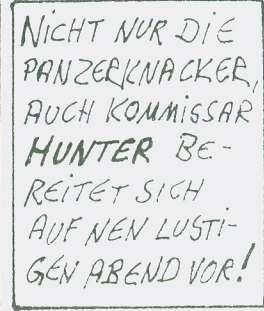 NICHT NUR DIE
PANZERKNACKER,
AUCH KOMMISSAR
HUNTER BE-
REITET SICH
AUF NEN LUSTI-
GEN ABEND VOR!